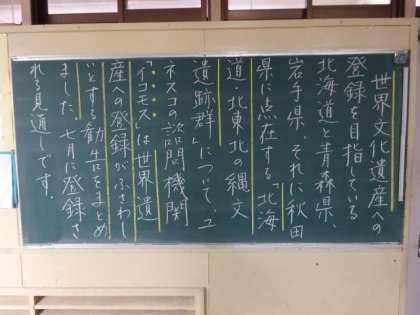 世界文化遺産への
登録を目指している
北海道と青森県、
岩手県、それに秋田
県に点在する「北海
道・北東北の縄文
遺跡群」について、ユ
ネスコの諮問機関
「イコモス」は世界遺
産への登録がふさわし
いとする勧告をまとめ
ました。七月に登録さ
れる見通しです。